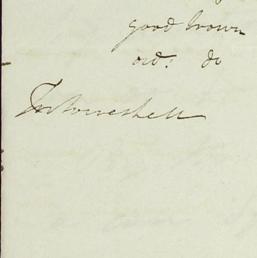 good brown
ord: do